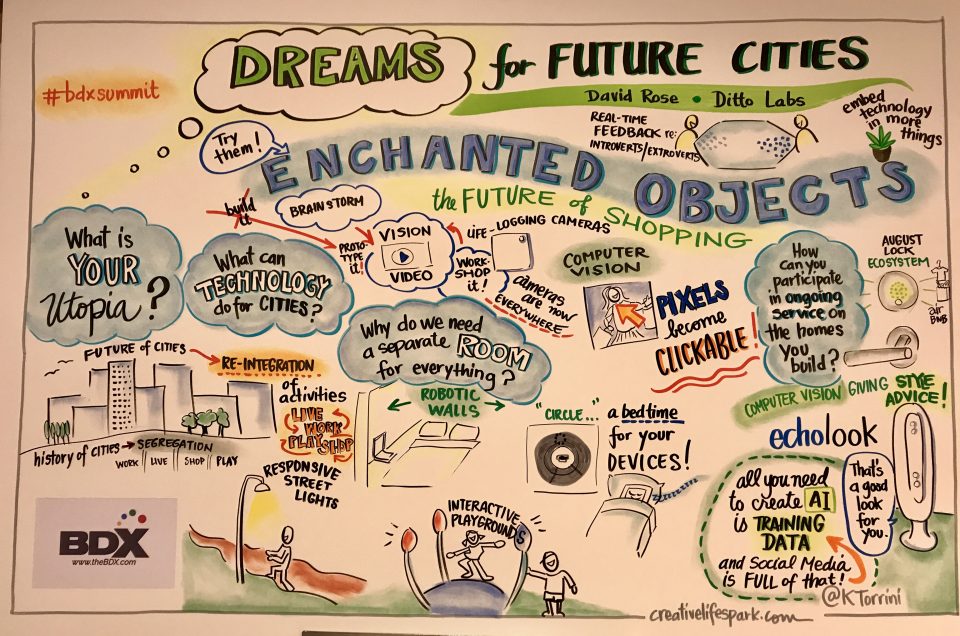 DREAMS for FUTURE CITIES
David Rose • Ditto Labs
#bdxsummit
REAL-TIME
FEEDBACK RE:
INTROVERTS/EXTROVERTS
embed
technology
in more
things
Try
them!
ENCHANTED OBJECTS
the FUTURE of SHOPPING
build
it
BRAINSTORM
PROTO-
TYPE
it!
VISION
VIDEO
LIFE-LOGGING CAMERAS
WORK-
SHOP
it!
cameras
are now
EVERYWHERE
COMPUTER
VISION
PIXELS
become
CLICKABLE!
How
can you
participate
in ongoing
service on
the homes
you
build?
AUGUST
LOCK
ECOSYSTEM
air
BNB
What is
YOUR
Utopia?
What can
TECHNOLOGY
do for CITIES?
Why do we need
a separate ROOM
for everything?
FUTURE of CITIES
RE-INTEGRATION
of
activities
LIVE
WORK
PLAY SHOP
history of CITIES → SEGREGATION
WORK | LIVE | SHOP | PLAY
ROBOTIC
WALLS
"CIRCLE..."
a bedtime
for your
DEVICES!
COMPUTER VISION GIVING STYE
ADVICE!
echolook
all you need
to create AI
is TRAINING
DATA
and Social Media
is FULL of that!
That's
a good
look
for
you.
RESPONSIVE
STREET
LIGHTS
INTERACTIVE
PLAYGROUNDS
BDX
www.theBDX.com
@KTorrini
creativelifespark.com